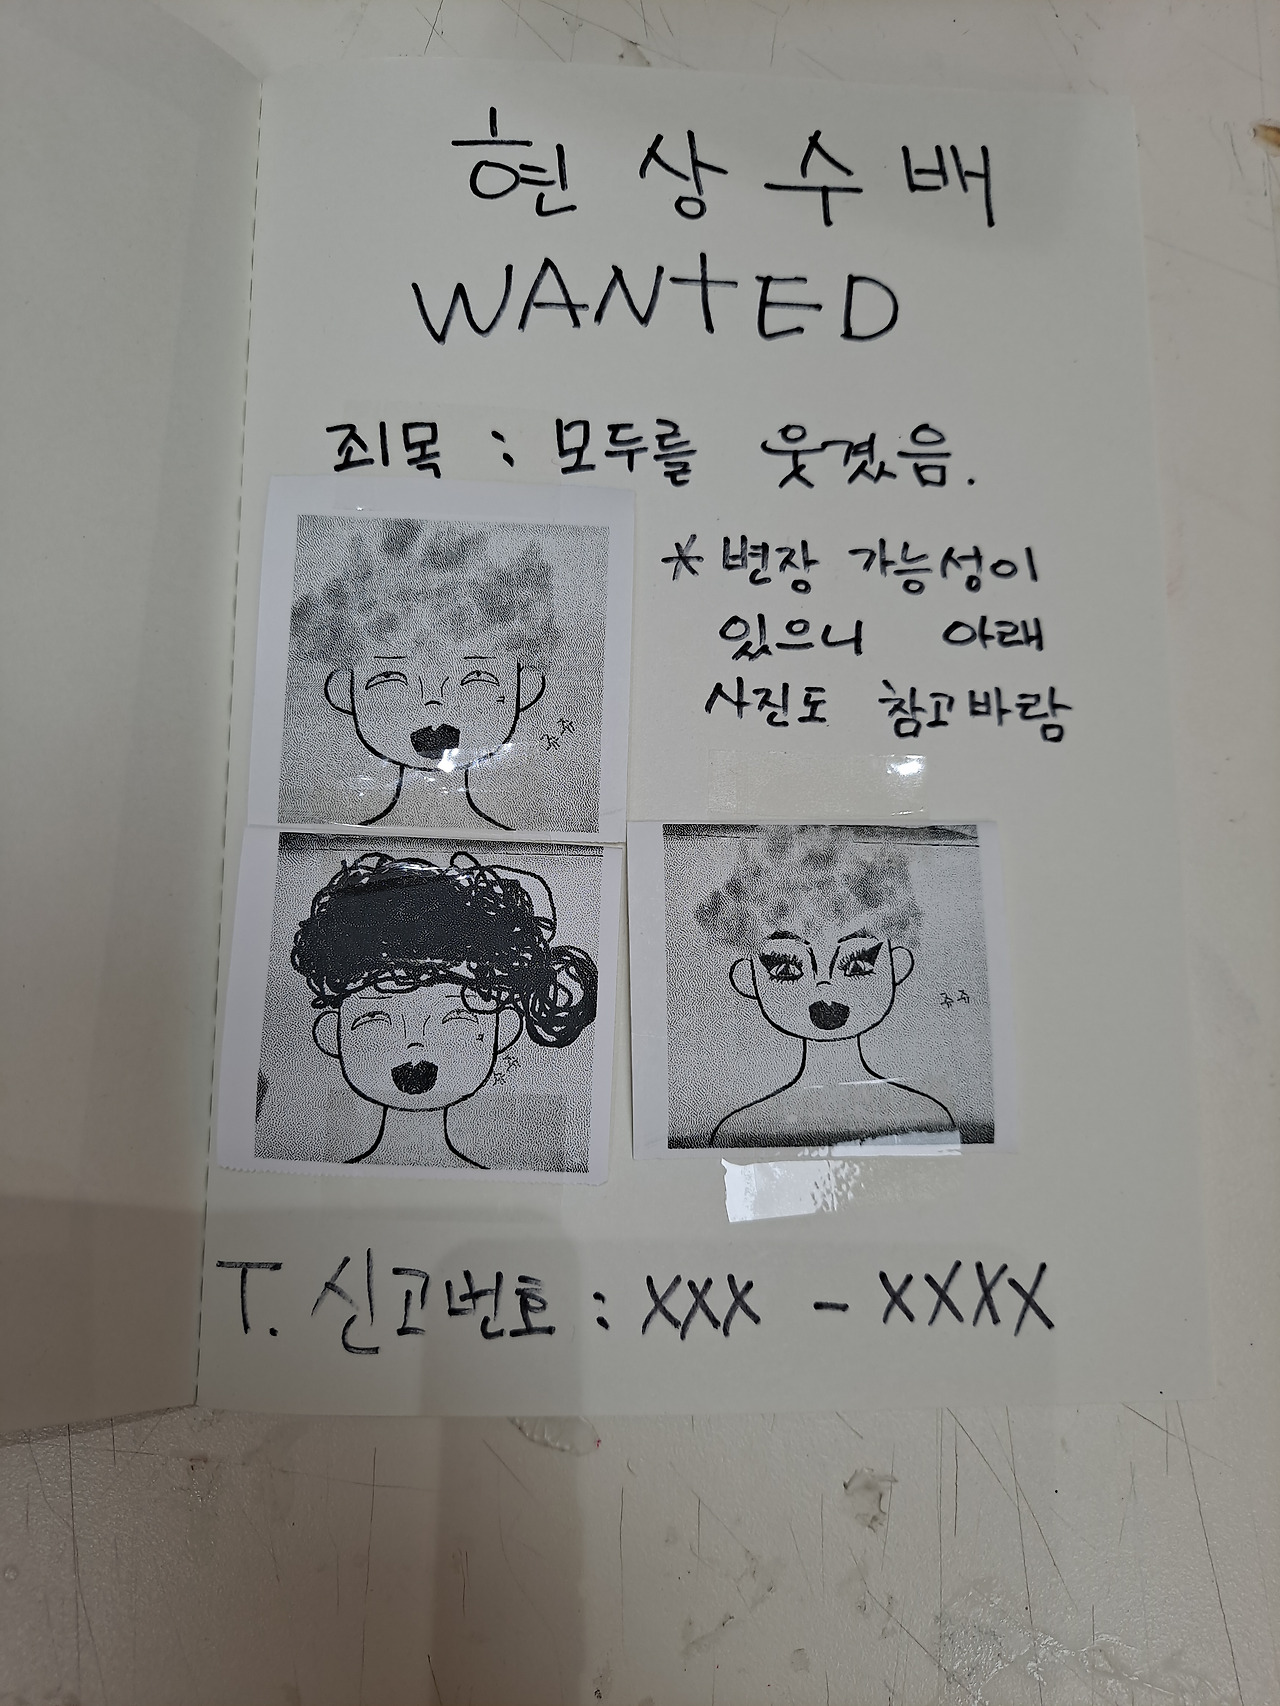 현상수배
WANTED
죄목 : 모두를 웃겼음.
* 변장 가능성이
있으니 아래
사진도 참고바람
쥬쥬
쥬쥬
쥬쥬
T. 신고번호 : XXX - XXXX